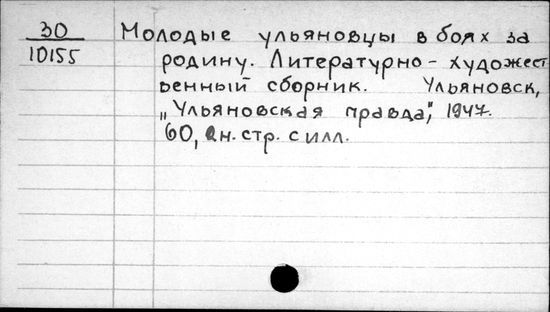 30 Молодые ульяновцы в боях за
10155 родину. Литературно-художест
венный сборник. Ульяновск,
„Ульяновская правда", 1947.
60, 2н. стр. с илл.